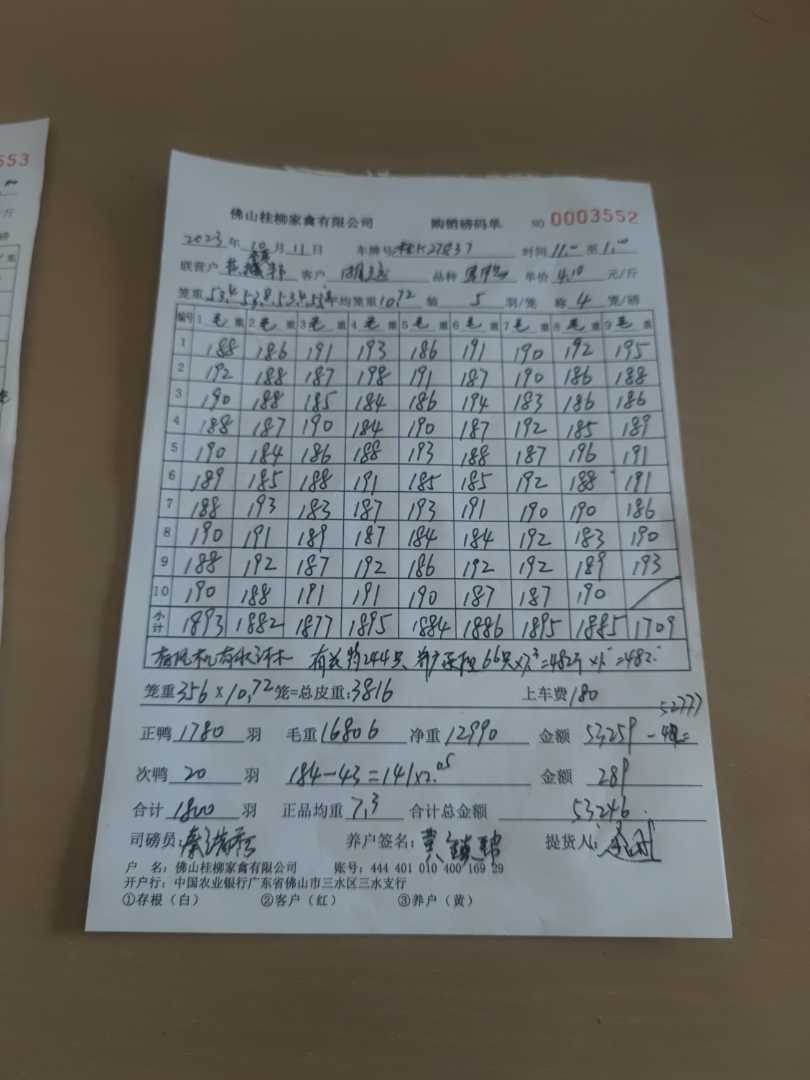 553
佛山桂柳家禽有限公司 购销磅码单 NO 0003552
2023年10月11日 车牌号 27837 时间11.00至1.00
联营户 客户 品种 单价4.10元/斤
笼重53.4.53.8.53.4.53.8平均笼重10.72 箱 5 羽/笼 称4笼/磅
编号 1毛重 2毛重 3毛重 4毛重 5毛重 6毛重 7毛重 8毛重 9毛重
1 188 186 191 193 186 191 190 192 195
2 192 188 187 198 191 187 190 186 188
3 190 188 185 184 186 194 183 186 186
4 188 187 190 184 190 187 192 185 189
5 190 184 186 188 193 188 187 196 191
6 189 185 188 191 185 185 192 188 191
7 188 193 183 187 193 191 190 190 186
8 190 191 189 187 184 184 192 183 190
9 188 192 187 192 186 192 192 189 193
10 190 188 191 191 190 187 187 190
小计 1893 1882 1877 1895 1884 1886 1895 1885 1709
244只 66只×7.3=482斤×1=482
笼重356×10.72笼=总皮重:3816 上车费180
52777
正鸭1780羽 毛重16806 净重12990 金额53259-482=
次鸭20羽 184-43=141×2.05 金额289
合计1800羽 正品均重7.3 合计总金额53246.
司磅员: 养户签名: 提货人:
户 名:佛山桂柳家禽有限公司 账号:444 401 010 400 169 29
开户行:中国农业银行广东省佛山市三水区三水支行
①存根(白) ②客户(红) ③养户(黄)